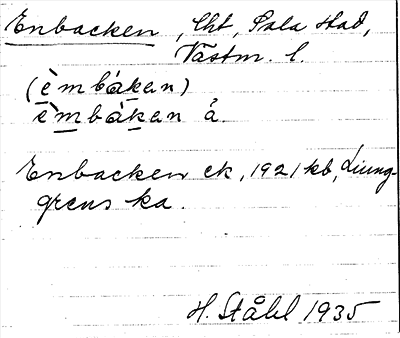 Enbacken, lht, Sala stad,
Västm. l.
(è̱mbá̱ḵan)
è̱m̱bá̱ḵan å.
Enbacken ek, 1921 kb, Ljung-
grens ka.
H. Ståhl 1935